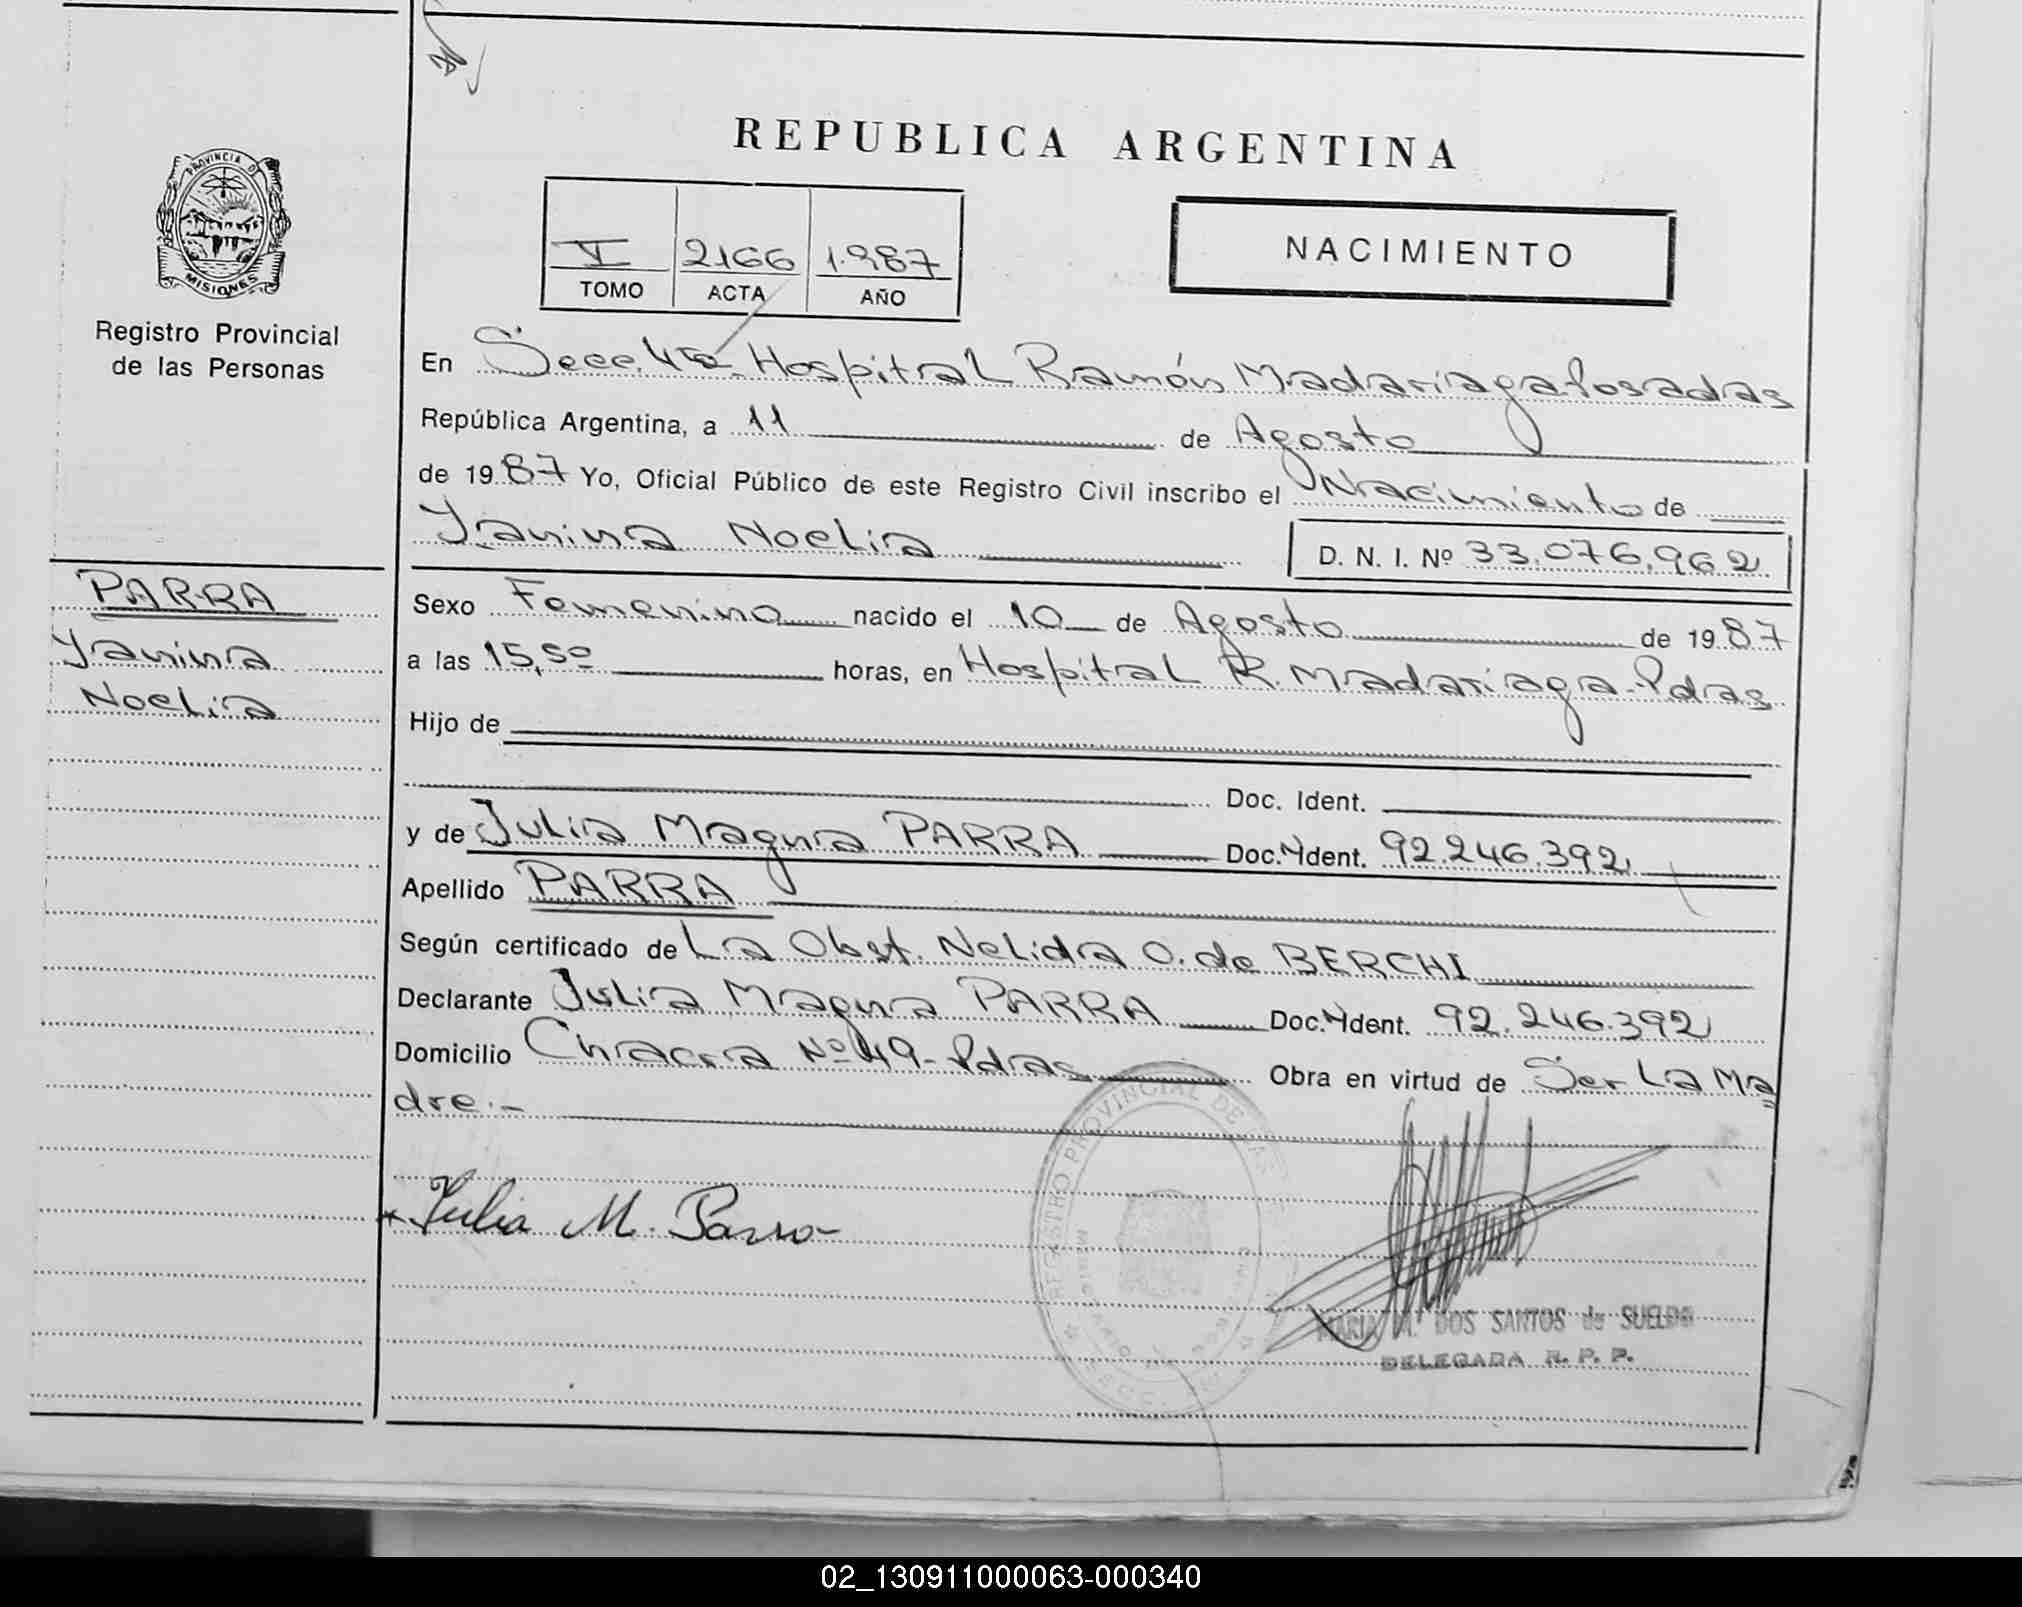 REPUBLICA ARGENTINA
PROVINCIA D
MISIONES
Registro Provincial
de las Personas
V 2166 1.987
TOMO ACTA AÑO
NACIMIENTO
En Secc. 4ta. Hospital Ramón Madariaga Posadas
República Argentina, a 11 de Agosto
de 1987 Yo, Oficial Público de este Registro Civil inscribo el Nacimiento de
Yanina Noelia D. N. I. Nº 33.076.962
PARRA
Yanina
Noelia
Sexo Femenino nacido el 10 de Agosto de 1987
a las 15,50 horas, en Hospital R. Madariaga-Pdas
Hijo de
Doc. Ident.
y de Julia Magna PARRA Doc. Ident. 92.246.392
Apellido PARRA
Según certificado de La Obst. Nelida O. de BERCHI
Declarante Julia Magna PARRA Doc. Ident. 92.246.392
Domicilio Chacra Nº 49-Pdas Obra en virtud de Ser La Ma
dre.-
REGISTRO PROVINCIAL DE LAS
Julia M. Parra
MARIA M. DOS SANTOS de SUELDO
DELEGADA R. P. P.
02_130911000063-000340